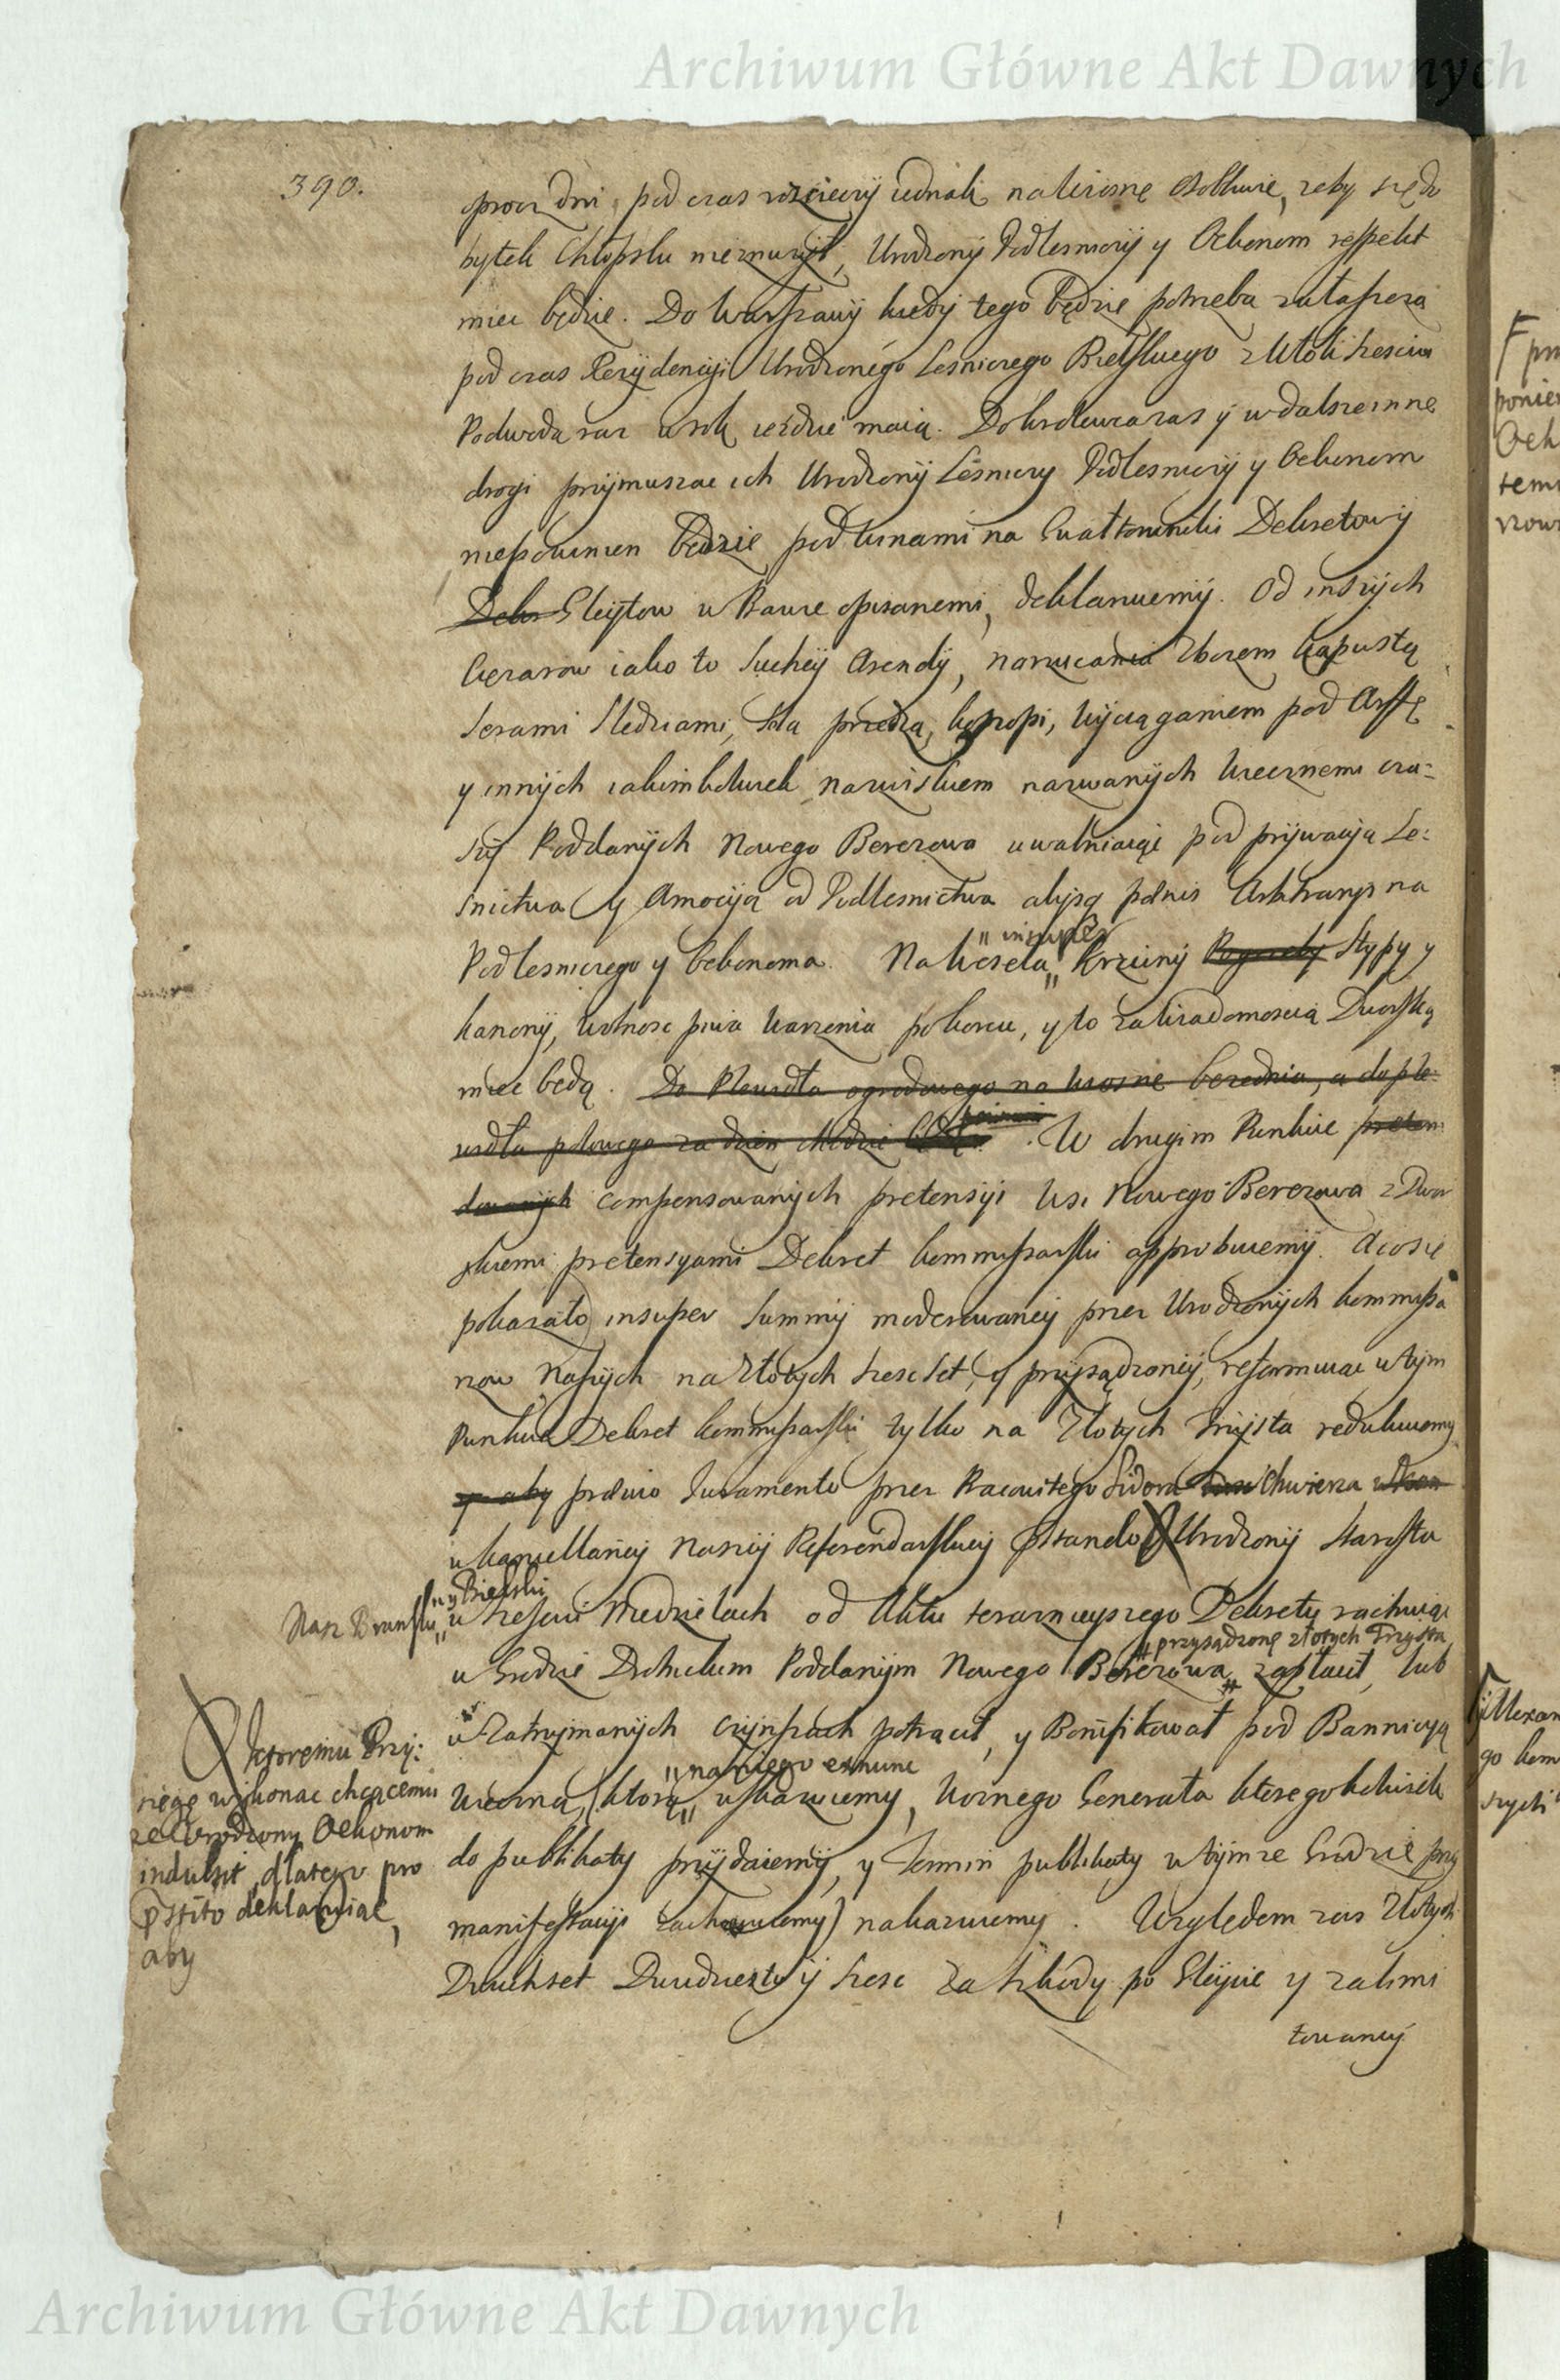 Archiwum Główne Akt Dawnych
390.
oprocz dni, pod czas rozcieczy iednak na wiosnę osobliwie, zeby się do
bytek Chłopsku nieznurzył, Urodzony Podlesniczy y Oekonom respekt
miec będzie. Do Warszawy kiedy tego będzie potrzeba
pod czas Rezydencyi Urodzonego Lesniczego Bielskiego z Włok szesciu
Podwoda raz w rok iezdzic maią. Do Krolewca zas y w dalsze inne
drogi przymuszac ich Urodzony Lesniczy Podlesniczy y Oekonom
niepowinien będzie pod winami na Gwałtowniki Dekretow y
Dekr Gleytow w Prawie opisanemi, deklaruiemy. Od inszych
Cięzarow iako to Suchey Arendy, narzucania Zbozem kapustą
Serami Sledziami, przedzą, konopi, wyciąganiem pod Arsztę
y innych iakimkolwiek nazwiskiem nazwanych wiecznemi cza-
sy Poddanych Nowego Berezowa uwalniaiąc pod prywacyą Le-
snictwa y Amocyą od Podlesnictwa alysą pœnis Arbitrarys na
Podlesniczego y Oekonoma. Na Wesela „insuper„ Krzciny Pogrzeby Stypy y
kanony, wolnosc piwa warzenia po korcu, y to za wiadomoscią Dworską
miec będą. Do Plewidła ogrodowego na wiosnę bezednia, a do ple-
widła polowego za dzien chodzic będą. W drugim Punkcie preten
dowanych compensowanych pretensyi wsi Nowego Berezowa z Dwor
skiemi pretensyami Dekret kommissarski approbuiemy. A co się
pokazało insuper Summy moderowaney przez Urodzonych kommissa
rzow Naszych na Złotych szescset, y przysądzoney, reformuiąc w tym
Punkcie Dekret kommissarski tylko na Złotych Trzysta redukuiemy
y aby prævio Juramento przez Pracowitego Sidora Chwierza
w kancellaryi Naszey Referendarskiey præstando Urodzony Starosta
Nasz Branski „y Bielski„ w szesciu Niedzielach od Aktu teraznieyszego Dekretu rachuiąc
w Grodzie Drohickim Poddanym Nowego Berezowa # przysądzone złotych Trzysta # zapłacił, lub
w Zatrzymanych czynszach potrącił, y Bonifikował pod Bannicyą
wieczną, (ktorą „na niego ex nunc„ wskazuiemy, Woznego Generała ktoregokolwiek
do publikaty przydaiemy, y Termin publikaty w tymze Grodzie przy
manifestacyi zachowuiemy) nakazuiemy. Względem zas Złotych
Dwuchset Dwudziestu y szesc za szkody po Gleycie y zalimi
towaney
ktoremu Przy-
sięgę wykonac chcącemu
ze Urodzony Oekonom
indulsit, dlatego pro
præstito deklaruiąc,
aby
Archiwum Główne Akt Dawnych